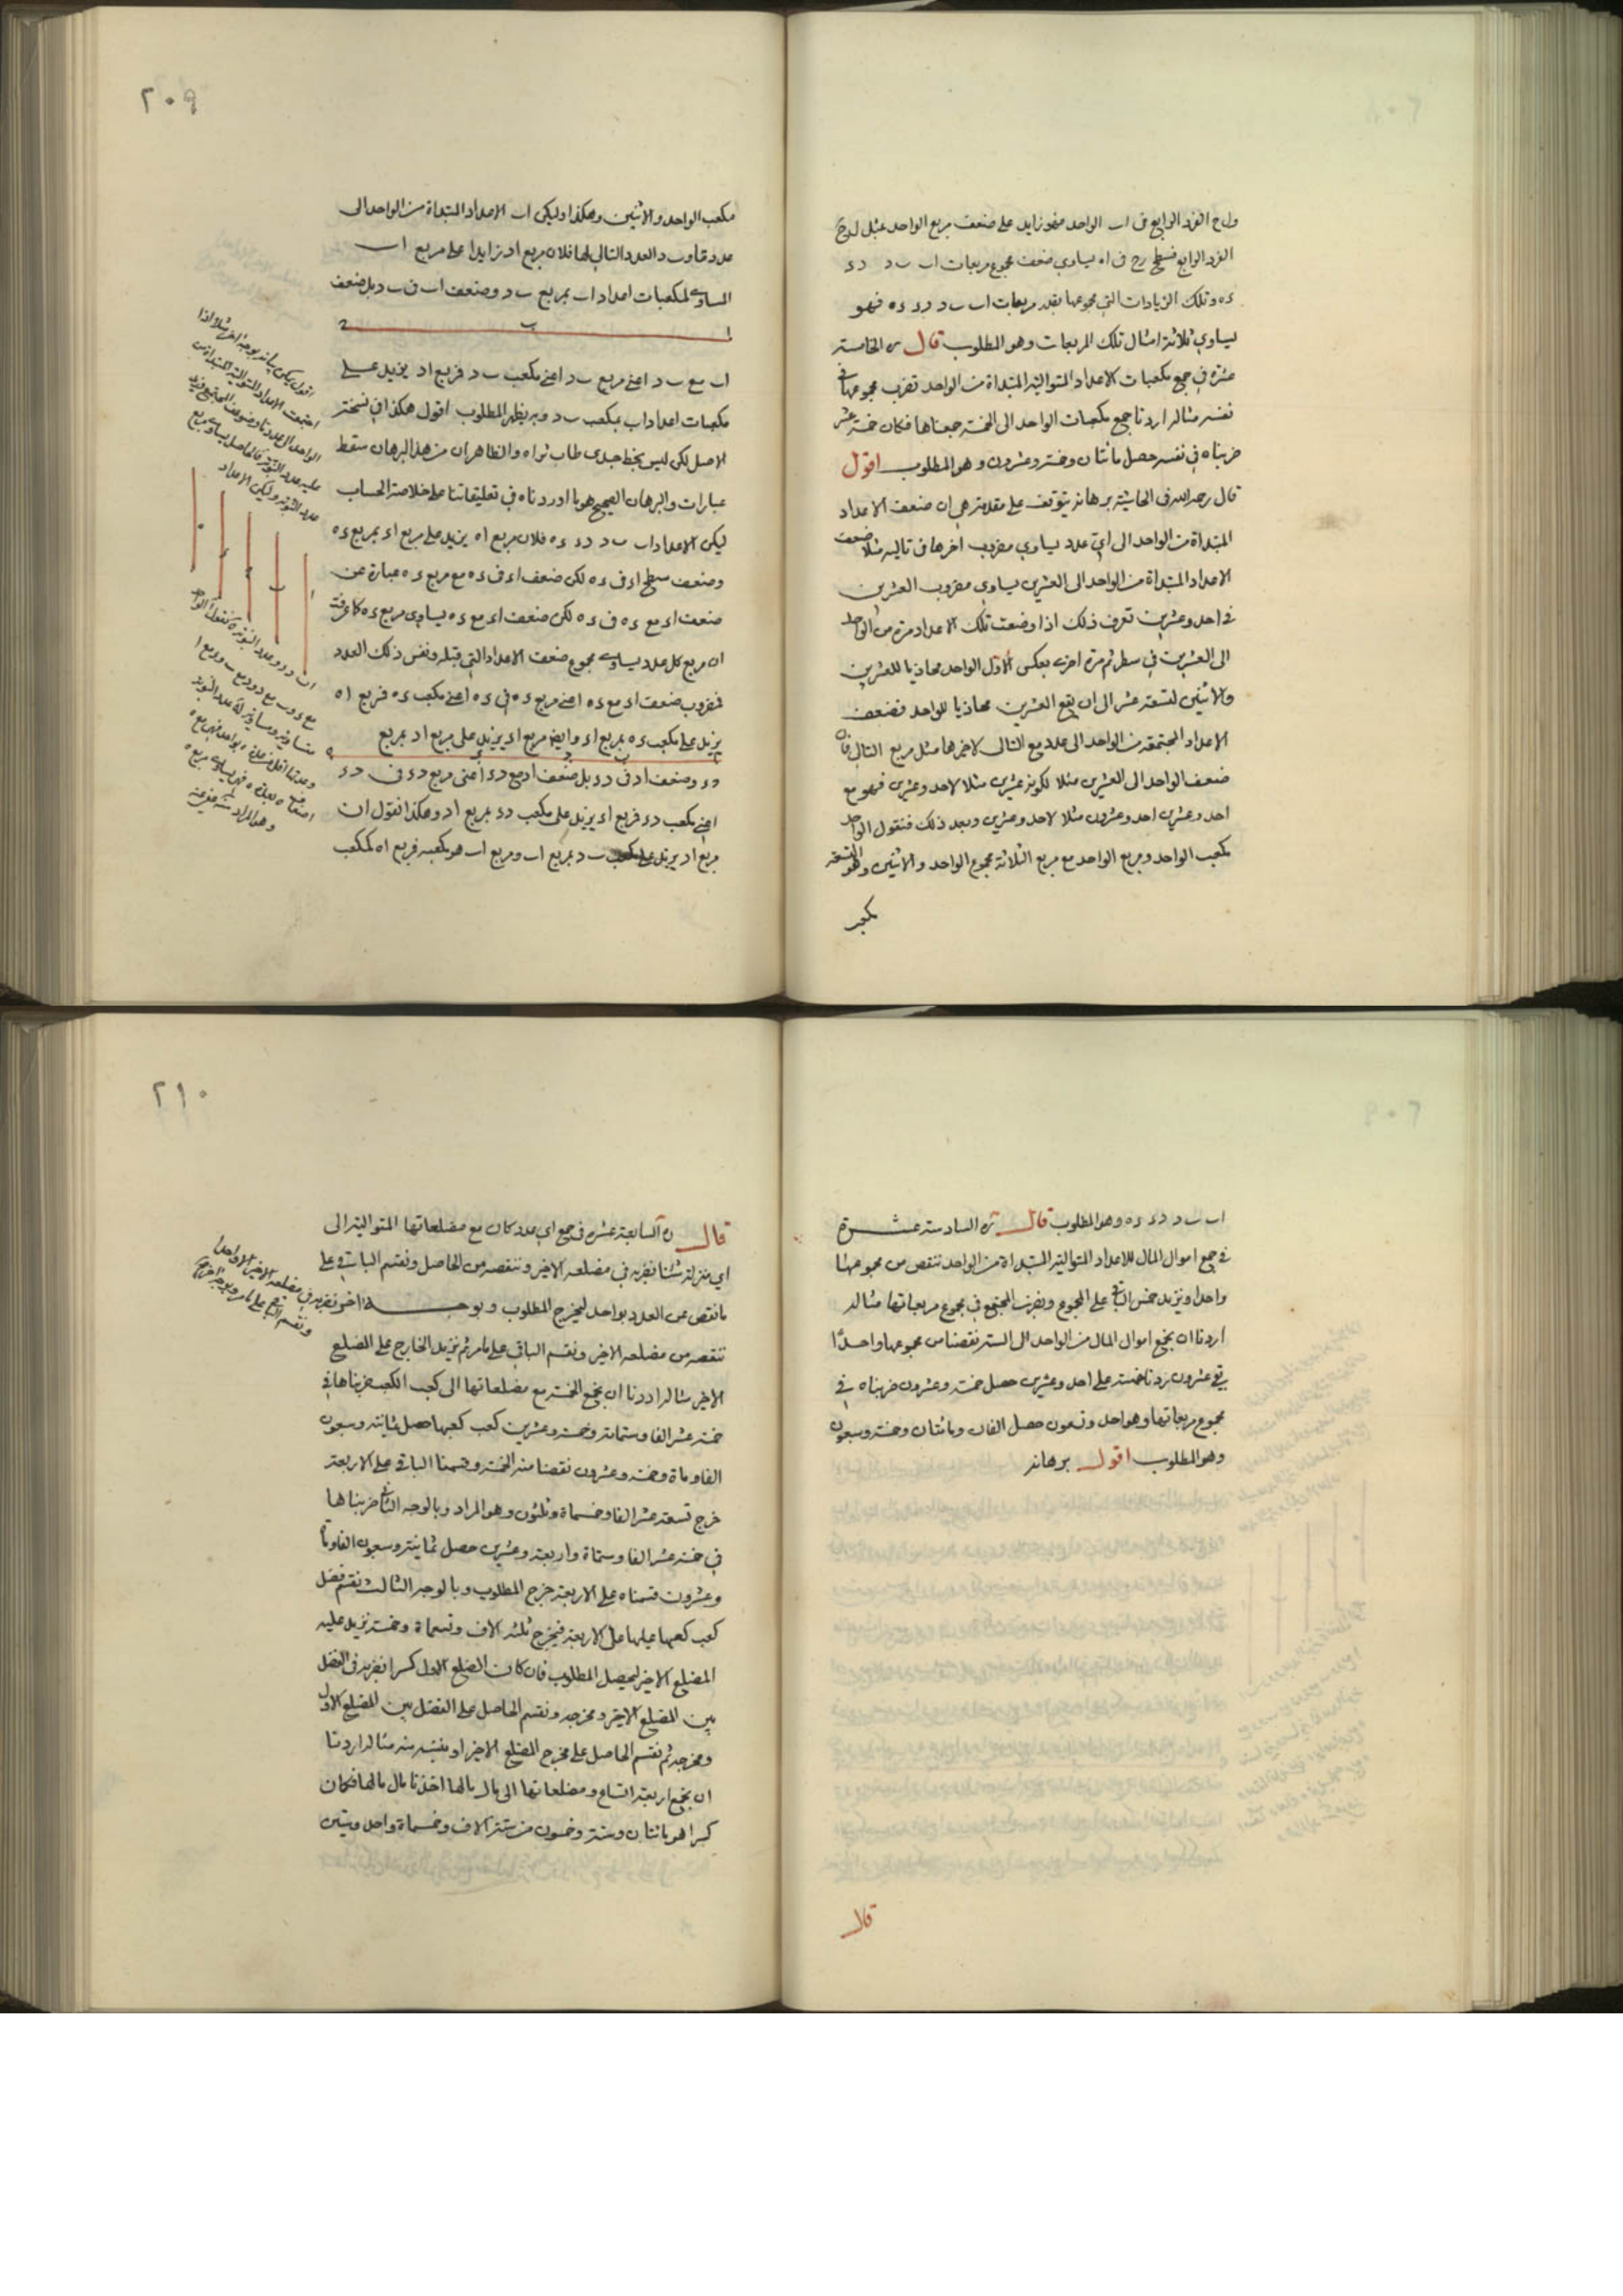 واح الفرد الرابع فى اب الواحد فهو زايد على ضعف مربع الواحد بمثل لوح
الفرد الرابع فسطح رح فى اه يساوي ضعف مجموع مربعات اب ب د د ء
ء ه وتلك الزيادات التى مجموعها بقدر مربعات اب ب د د ء ء ه فهو
يساوي ثلاثة امثال تلك المربعات وهو المطلوب قال الخامسة
عشرة في جمع مكعبات الاعداد المتوالية المبتداة من الواحد تضرب مجموعها في
نفسه مثاله اردنا جمع مكعبات الواحد الى الخمسة جمعناها فكان خمسة عشر
ضربناه في نفسه حصل مائتان وخمسة وعشرون وهو المطلوب اقول
قال رحمه الله فى الحاشية برهانه يتوقف على مقدمة هى ان ضعف الاعداد
المبتداة من الواحد الى اى عدد يساوي مضروب اخرها فى تاليه مثلا ضعف
الاعداد المبتداة من الواحد الى العشرين يساوي مضروب العشرين
في احد وعشرين تعرف ذلك اذا وضعت تلك الاعداد مرة من الواحد
الى العشرين في سطر ثم مرة اخرى بعكس الاول الواحد محاذيا للعشرين
والاثنين لتسعة عشر الى ان يقع العشرين محاذيا للواحد فضعف
الاعداد المجتمعة من الواحد الى عدد مع التالى لاخيرها مثل مربع التالى فان
ضعف الواحد الى العشرين مثلا لكونه عشرين مثلا لاحد وعشرين فهو مع
احد وعشرين احد وعشرون مثلا لاحد وعشرين وبعد ذلك فنقول الواحد
مكعب الواحد ومربع الواحد مع مربع الثلاثة مجموع الواحد والاثنين وهو التسعة
مكعب
٢٠٩
مكعب الواحد والاثنين وهكذا وليكن اب الاعداد المبتداة من الواحد الى
عدد ما وب د العدد التالي لها فلان مربع اد زايدا على مربع اب
المساوي لمكعبات اعداد اب بمربع ب د وضعف اب فى ب د بل ضعف
اب مع ب د اعني مربع ب د اعني مكعب ب د فمربع اد يزيد على
مكعبات اعداد اب بمكعب ب د وبه يظهر المطلوب اقول هكذا فى نسخة
الاصل لكن ليس بخط جدى طاب ثراه والظاهر ان من هذا البرهان سقط
عبارات والبرهان الصحيح هو ما اوردناه في تعليقاتنا على خلاصة الحساب
ليكن الاعداد اب ب د د ء ء ه فلان مربع اه يزيد على مربع اء بمربع ء ه
وضعف سطح اء فى ء ه لكن ضعف اء فى ء ه مع مربع ء ه عبارة عن
ضعف اء مع ء ه فى ء ه لكن ضعف اء مع ء ه يساوي مربع ء ه كما عرفت
ان مربع كل عدد يساوي مجموع ضعف الاعداد التي قبله ونفس ذلك العدد
فمضروب ضعف اء مع ء ه اعني مربع ء ه فى ء ه اعني مكعب ء ه فمربع اه
يزيد على مكعب ء ه بمربع اء وايضا مربع اء يزيد على مربع اد بمربع
د ء وضعف اد فى د ء بل ضعف اد مع د ء اعني مربع د ء فى د ء
اعني مكعب د ء فمربع اء يزيد على مكعب د ء بمربع اد وهكذا نقول ان
مربع اد يزيد على مكعب ب د بمربع اب ومربع اب هو مكعبه فمربع اه كمكعب
اقول يمكن بيانه بوجه اخر مثلا اذا
اجتمعت الاعداد المتوالية المبتداة من
اب ب د د ء ء ه وهو المطلوب قال السادسة عشرة
في جمع اموال المال للاعداد المتوالية المبتداة من الواحد ننقص من مجموعها
واحدا ونزيد خمس الباقي على المجموع ونضرب المجتمع في مجموع مربعاتها مثاله
اردنا ان نجمع اموال المال من الواحد الى الستة نقصنا من مجموعها واحدا
بقي عشرون زدنا خمسه على احد وعشرين حصل خمسة وعشرون ضربناه في
مجموع مربعاتها وهو احد وتسعون حصل الفان ومائتان وخمسة وسبعون
وهو المطلوب اقول برهانه
قال
٢١٠
قال السابعة عشره في جمع اي عدد كان مع مضلعاتها المتوالية الى
اي منزلة شئنا نضربه في مضلعه الاخير وننقصه من الحاصل ونقسم الباقي على
ما نقص عن العدد بواحد ليخرج المطلوب وبوجه اخر
ننقصه من مضلعه الاخير ونقسم الباقي على ما مر ثم نزيد الخارج على المضلع
الاخير مثاله اردنا ان نجمع الخمسة مع مضلعاتها الى كعب الكعب ضربناها في
خمسة عشر الفا وستمائة وخمسة وعشرين كعب كعبها حصل ثمانية وسبعون
الفا وماة وخمسة وعشرون نقصنا منه الخمسة وقسمنا الباقي على الاربعة
خرج تسعة عشر الفا وخمسماة وثلثون وهو المراد وبالوجه الثاني ضربناها
في خمسة عشر الفا وستماة واربعة وعشرين حصل ثمانية وسبعون الفا وماة
وعشرون قسمناه على الاربعة خرج المطلوب وبالوجه الثالث نقسم فضل
كعب كعبها عليها على الاربعة فيخرج ثلثة الاف وتسعماة وخمسة نزيد عليه
المضلع الاخير ليحصل المطلوب فان كان الضلع الاول كسرا نضربه فى الفضل
بين المضلع الاخير ومخرجه ونقسم الحاصل على الفضل بين المضلع الاول
ومخرجه ثم نقسم الحاصل على مخرج المضلع الاخير او ننسبه منه مثاله اردنا
ان نجمع اربعة اتساع ومضلعاتها الى مال مالها اخذنا مال مالها فكان
كسرا هو مائتان وستة وخمسون من ستة الاف وخمسماة واحد وستين
نضربه في مضلعه الاخير الا واحدا
ونقسم الحاصل على ما مر وبوجه اخر